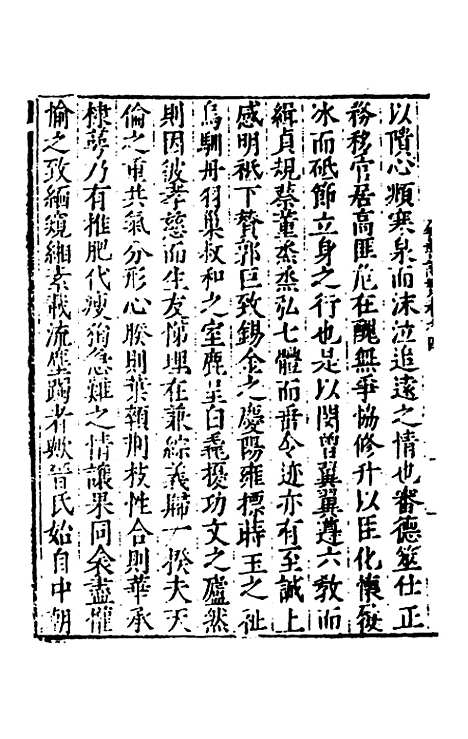 以隮心頫寒泉而沬泣追遠之情也審德筮仕正
務移官居高匪危在醜無爭協修升以臣化懷爰
冰而砥節立身之行也是以閔曾翼翼遵六敎而
緝貞規蔡董烝烝弘七體而垂令迹亦有至誠上
感明祇下贊郭巨致錫金之慶陽雍摽蒔玉之祉
烏馴丹羽巢叔和之室鹿呈白毳擾功文之廬然
則因彼孝慈而生友悌理在兼綜義歸一揆夫天
倫之重共氣分形心睽則葉顇荆枝性合則華承
棣萼乃有推肥代瘦徇急難之情讓果同衾盡懽
愉之致緬窺緗素載流塵躅者歟晉氏始自中朝